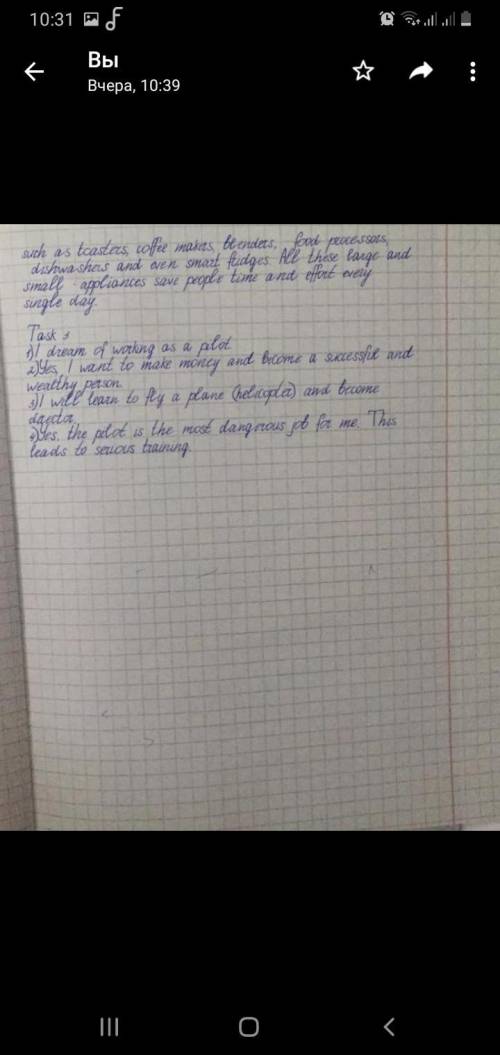 10:31
Вы
Вчера, 10:39
such as toasters, coffee makers, blenders, food processors,
dishwashers and even smart fridges All these large and
small appliances save people time and effort every
single day.
Task 3
1) I dream of working as a pilot
2) Yes, I want to make money and become a successful and
wealthy person.
3) I will learn to fly a plane (helicopter) and become
4) Yes, the pilot is the most dangerous job for me. This
leads to serious training.